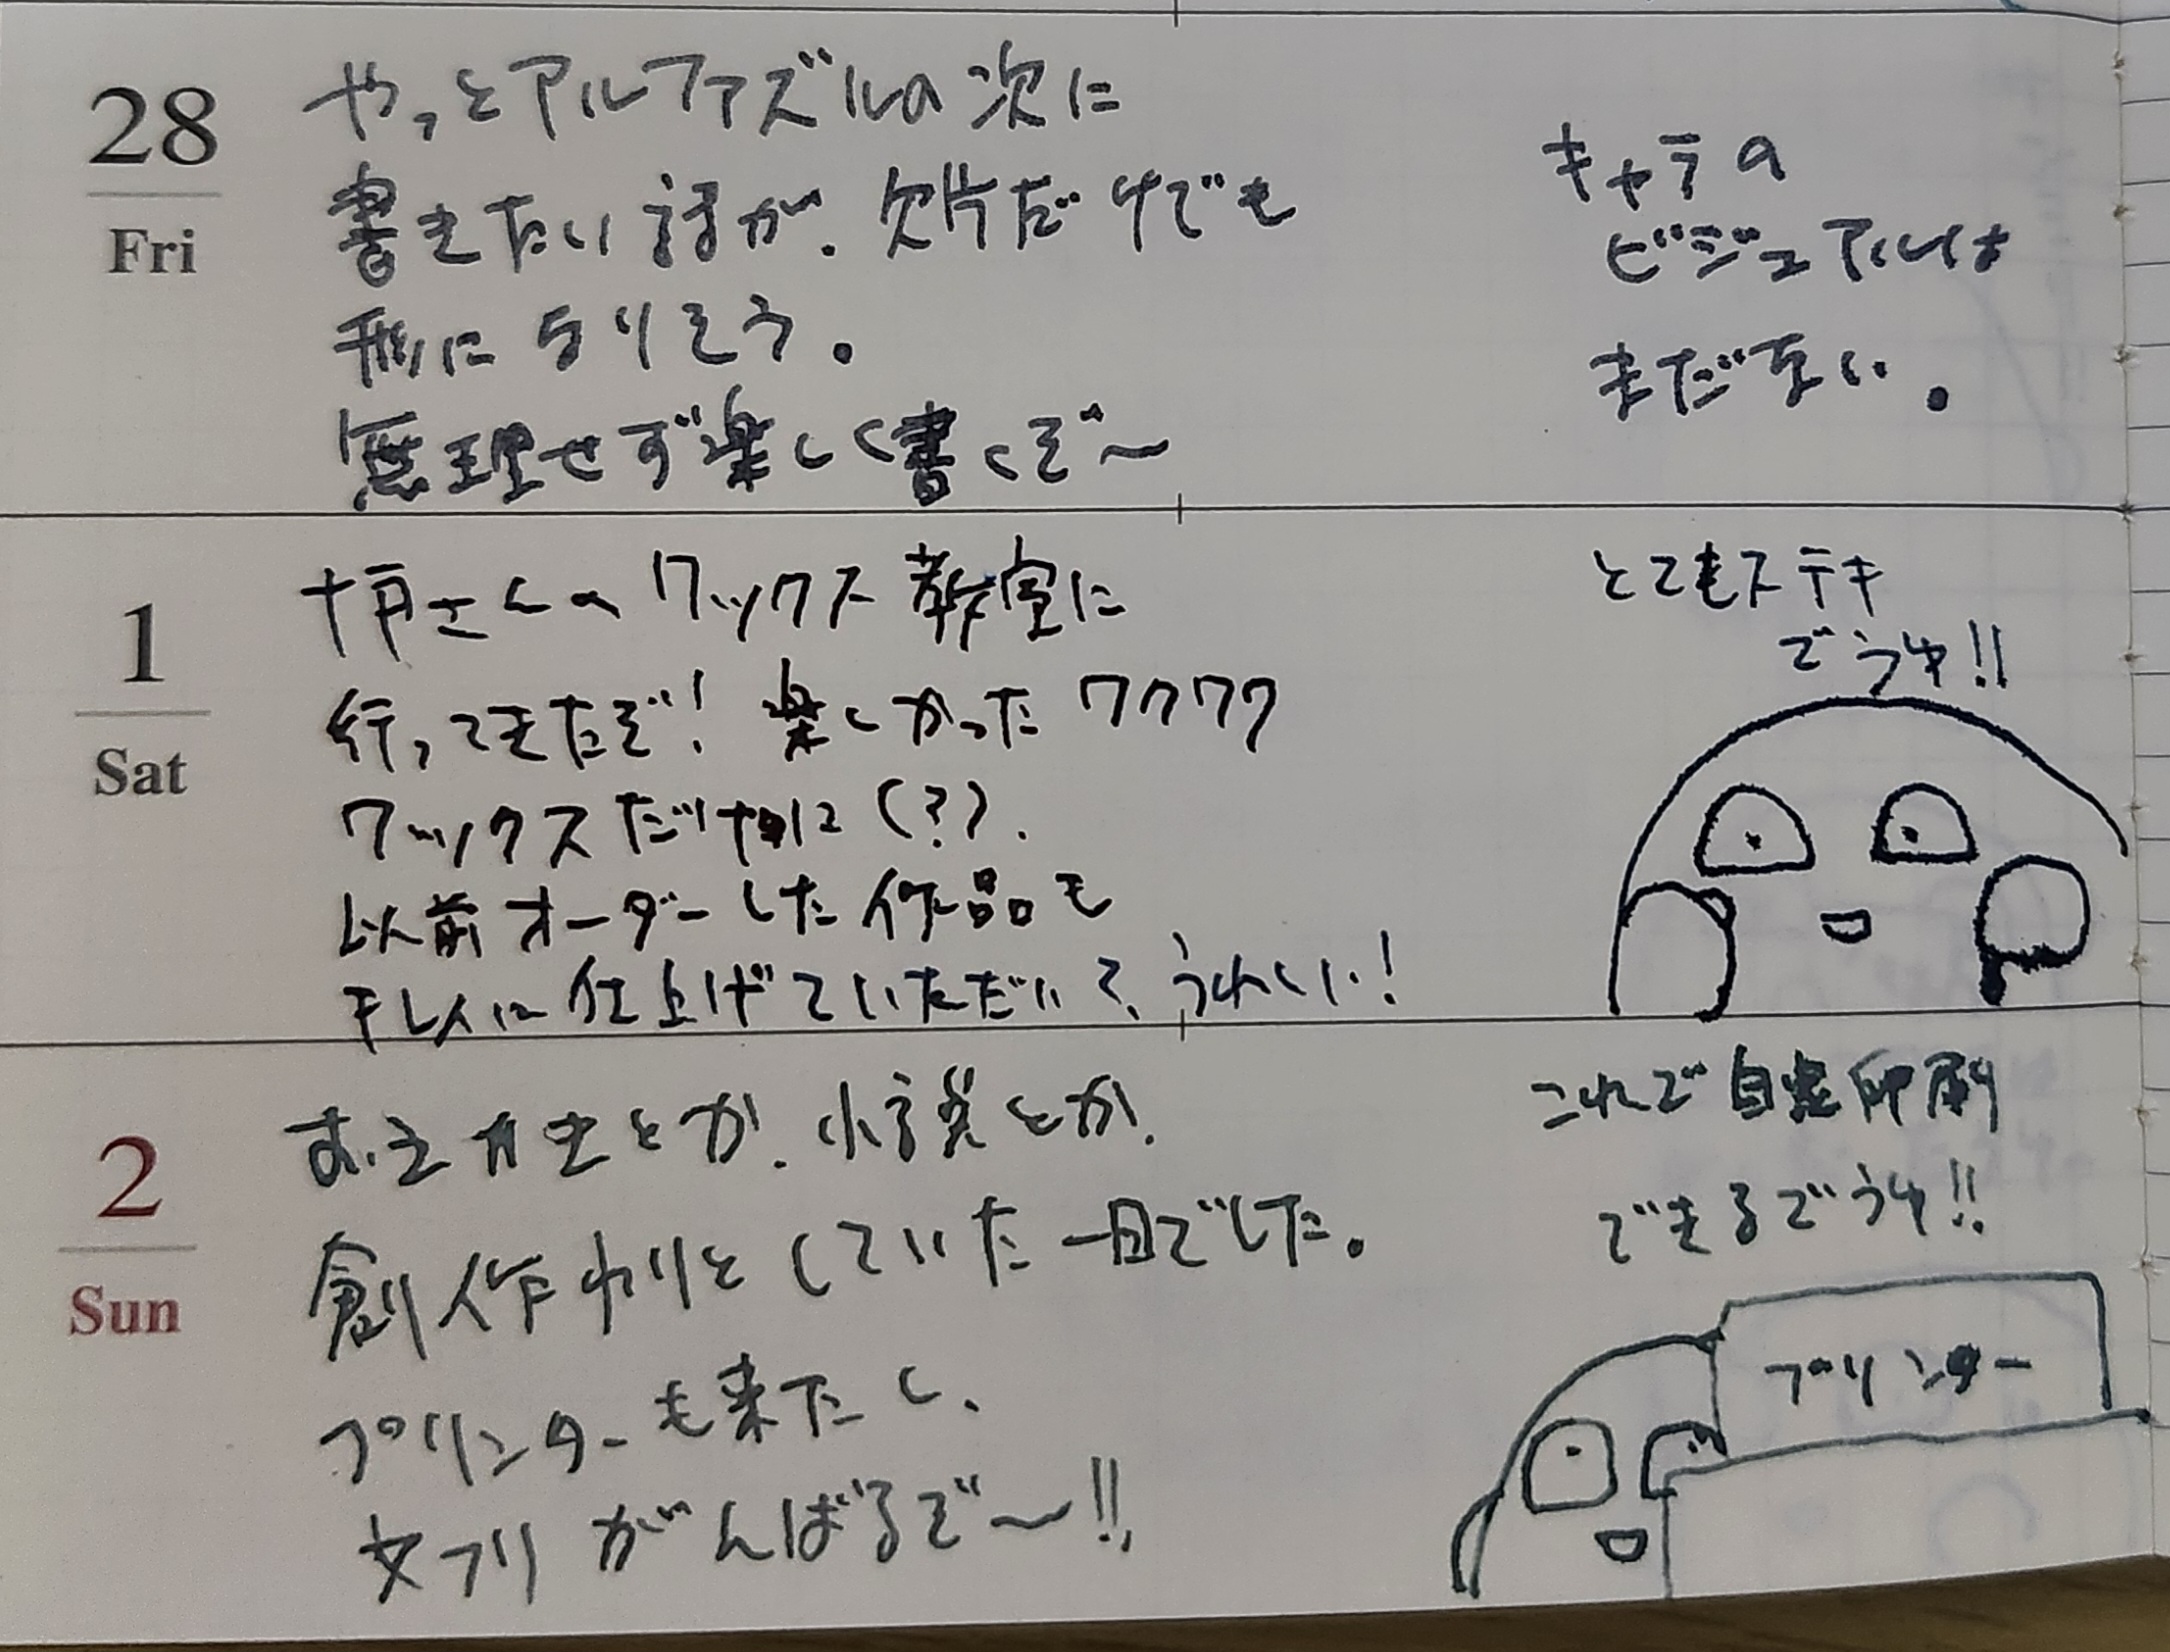 28
Fri
やっとアルファズルの次に
書きたい話が、欠片だけでも
形になりそう。
無理せず楽しく書くぞ〜
キャラの
ビジュアルは
まだない。
1
Sat
さんのワックス教室に
行ってきたぞ! 楽しかったワクワク
ワックスだけに(?)、
以前オーダーした作品も
キレイに仕上げていただいて、うれしい!
とてもステキ
でうゆ!!
2
Sun
おえかきとか、小説とか、
創作わりとしていた一日でした。
プリンターも来たし、
文フリがんばるぞ〜!!
これで自宅印刷
できるでうゆ!!
プリンター